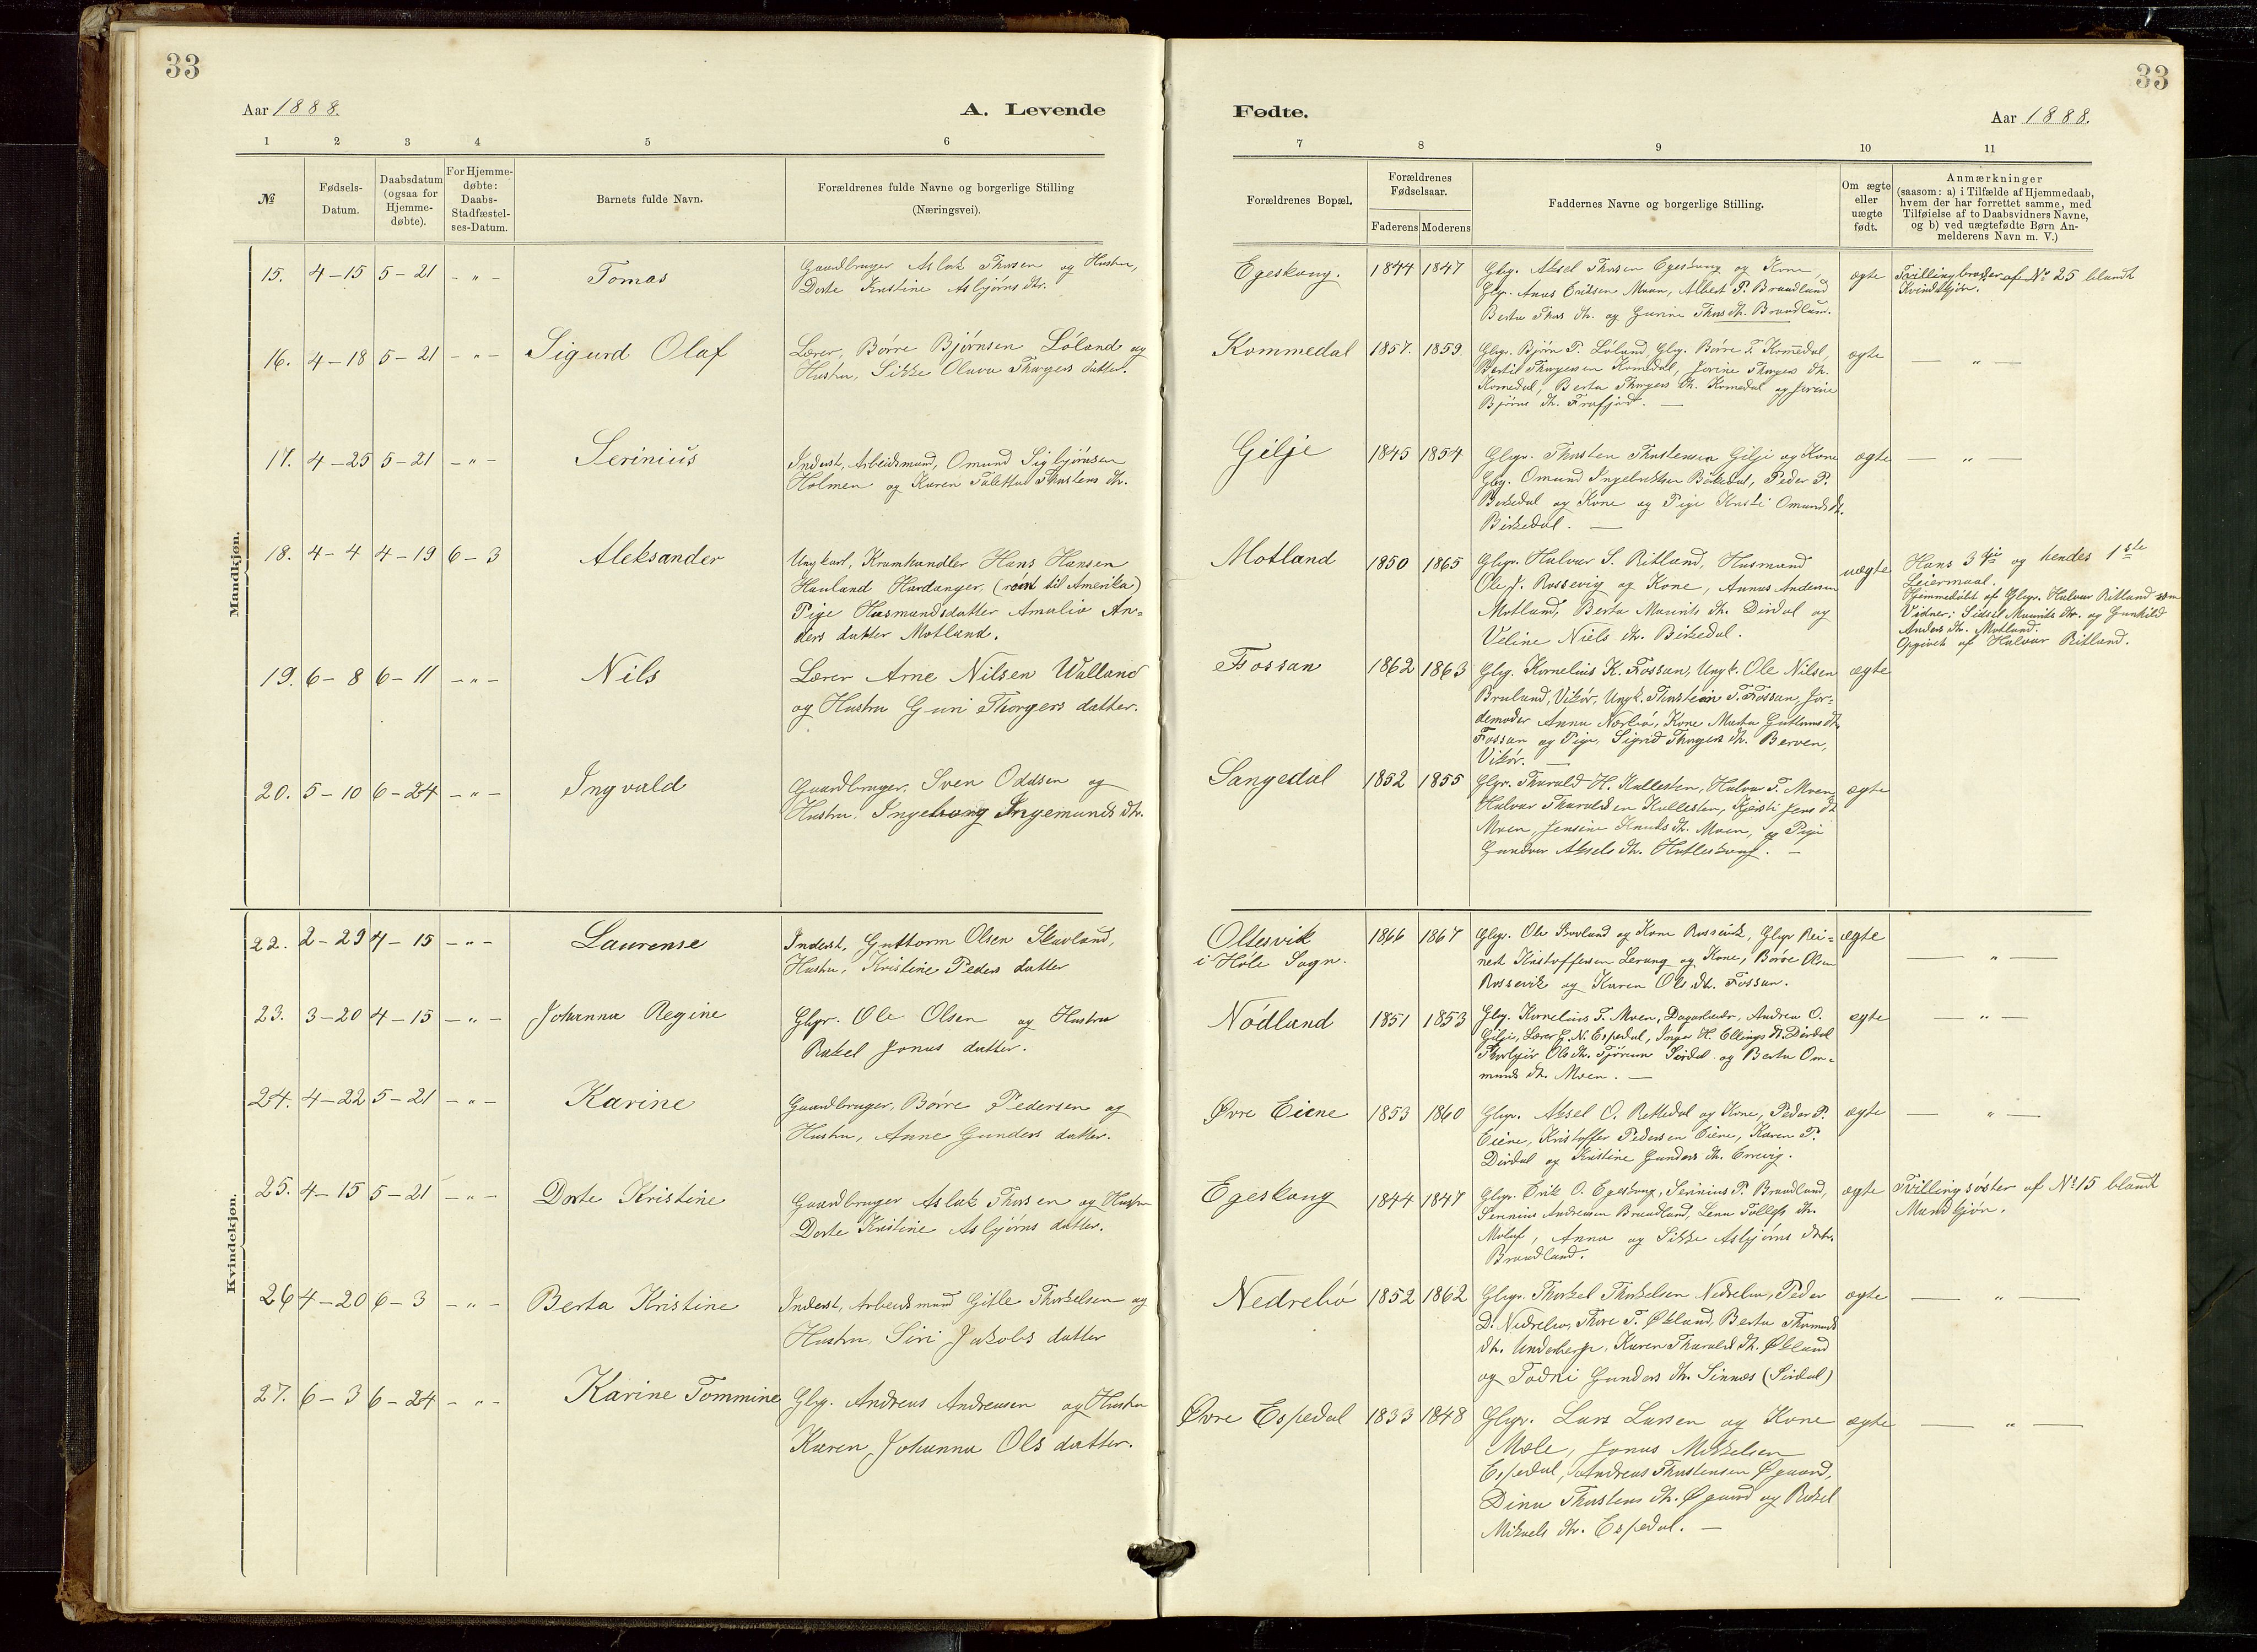 33
33
Aar 1888.
A. Levende
Fødte.
Aar 1888.
1 2 3 4 5 6
7 8 9 10 11
№
Fødsels-
Datum.
Daabsdatum
(ogsaa for
Hjemme-
døbte).
For Hjemme-
døbte:
Daabs-
Stadfæstel-
ses-Datum.
Barnets fulde Navn.
Forældrenes fulde Navne og borgerlige Stilling
(Næringsvei).
Forældrenes Bopæl.
Forældrenes
Fødselsaar.
Faderens Moderens
Faddernes Navne og borgerlige Stilling.
Om ægte
eller
uægte
født.
Anmærkninger
(saasom: a) i Tilfælde af Hjemmedaab,
hvem der har forrettet samme, med
Tilføielse af to Daabsvidners Navne,
og b) ved uægtefødte Børn An-
melderens Navn m. V.)
Mandkjøn.
15. 4-15 5-21 - " - Tomas
Gaardbruger Aslak Thorsen og Hustru,
Dorte Kristine Asbjørns dtr.
Egeskaug. 1844 1847
Gbgr. Aksel Thorsen Egeskaug og Kone,
Gbgr. Anus Eriksen Moen, Albert P. Braadland
Berta Thors dtr. og Gurine Thors dtr. Braadland.
ægte
Tvillingbroder af No 25 blandt
Kvindekjøn.
16. 4-18 5-21 - " - Sigurd Olaf
Lærer, Børre Bjørnsen Løland og
Hustru, Sikke Olava Thorgers datter.
Kommedal 1857. 1859.
Gbgr. Bjørn P. Løland, Gbgr. Børre T. Komedal,
Bertil Thorgersen Komedal, Jorine Thorgers dtr.
Komedal, Berta Thorgers dtr. Komedal og Jorine
Bjørns dtr. Frafjord. -
ægte - " -
17. 4-25 5-21 - " - Serinius
Inderst, Arbeidsmand, Omund Sigbjørnsen
Holmen og Karen Taletta Thorstens dtr.
Gilje 1845 1854
Gbgr. Thorsten Thorstensen Gilje og Kone
Gbgr. Omund Ingebretsen Birkedal, Peder P.
Birkedal og Kone og Pige Kristi Omunds dtr.
Birkedal. -
ægte - " -
18. 4-4 4-19 6-3 Aleksander
Ungkarl, Kramhandler Hans Hansen
Hauland Hardanger, (reist til Amerika)
Pige Husmandsdatter Amalia An-
ders datter Motland.
Motland 1850 1865
Gbgr. Halvar S. Ritland, Husmand
Ole J. Rossevig og Kone, Annas Andersen
Motland, Berta Maurits dtr. Dirdal og
Veline Niels dtr. Birkedal.
uægte
Hans 3die og hendes 1ste
Leiermaal.
Hjemmedøbt af Gbgr. Halvar Ritland som
Vidner: Sidsel Maurits dtr. og Gunhild
Anders dtr. Motland.
Opgivet af Halvar Ritland.
19. 6-8 6-11 - " - Nils
Lærer Arne Nilsen Walland
og Hustru Guri Thorgers datter.
Fossan 1862 1863
Gbgr. Kornelius K. Fossan, Ungk. Ole Nilsen
Braland, Vikør, Ungk. Thorstein T. Fossan, Jor-
demoder Anna Nærbø, Kone Marta Guttorms dtr.
Fossan og Pige, Sigrid Thorgers dtr. Berven,
Vikør. -
ægte
20. 5-10 6-24 - " - Ingvald
Gaardbruger, Sven Oddsen og
Hustru, Ingeborg Ingemunds dtr.
Sangedal 1852 1855
Gbgr. Tharald H. Kallesten, Halvar T. Moen,
Halvar Tharaldsen Kallesten, Kjersti Jens dtr.
Moen, Jensine Knuts dtr. Moen, og Pige
Gundvar Aksels dtr. Hatleskaug. -
ægte
Kvindekjøn.
22. 2-29 4-15 - " - Laurense
Inderst, Guttorm Olsen Skavland,
Hustru, Kristine Peders datter
Oltesvik
i Høle Sogn.
1866 1867
Gbgr. Ole Skavland og Kone Rossevik, Gbgr Rei-
nert Kristoffersen Lerang og Kone, Børre Olsen
Rossevik og Karen Ols dtr. Fossan.
ægte - " -
23. 3-20 4-15 - " - Johanna Regine
Gbgr. Ole Olsen og Hustru
Rakel Jonas datter.
Nødland 1851 1853
Gbg. Kornelius T. Moen, Dagarbeider, Andreas O.
Gilje, Lærer G. N. Espedal, Inga H. Ellings dtr Dirdal
Thorbjør Ols dtr. Tjørum Sirdal og Berta Om-
munds dtr. Moen. -
ægte - " -
24. 4-22 5-21 - " - Karine
Gaardbruger, Børre Pedersen og
Hustru, Anne Gunders datter.
Øvre Eiene 1853 1860
Gbgr. Aksel O. Rettedal og Kone, Peder P.
Eiene, Kristoffer Pedersen Eiene, Karen P.
Dirdal og Kristine Gunders dtr. Ervevig.
ægte - " -
25. 4-15 5-21 - " - Dorte Kristine
Gaardbruger Aslak Thorsen og Hustru
Dorte Kristine Asbjørns datter.
Egeskaug 1844 1847
Gbgr. Erik O. Egeskaug, Serinius P. Braadland,
Sennius Andreasen Braadland, Lena Tollefs dtr.
Molaf, Anna og Sikke Asbjørns døtre
Braadland.
ægte
Tvillingsøster af No 15 blandt
Mandkjøn.
26 4-20 6-3 - " - Berta Kristine
Inderst, Arbeidsmand Gitle Thorkelsen og
Hustru, Siri Jakobs datter
Nedrebø 1852 1862
Gbgr. Thorkel Thorkelsen Nedrebø, Peder
D. Nedrebø, Thore T. Økland, Berta Thormods
dtr. Underberge, Karen Tharalds dtr. Økland
og Todni Gunders dtr. Sinnæs (Sirdal)
ægte - " -
27. 6-3 6-24 - " - Karine Tommine
Gbgr. Andreas Andreasen og Hustru
Karen Johanna Ols datter.
Øvre Espedal 1833 1848
Gbgr. Lars Larsen og Kone
Mæle, Jonas Mikkelsen
Espedal, Andreas Thorstensen Øgaard,
Dina Thorstens dtr. Øgaard og Rakel
Mikaels dtr. Espedal. -
ægte - " -